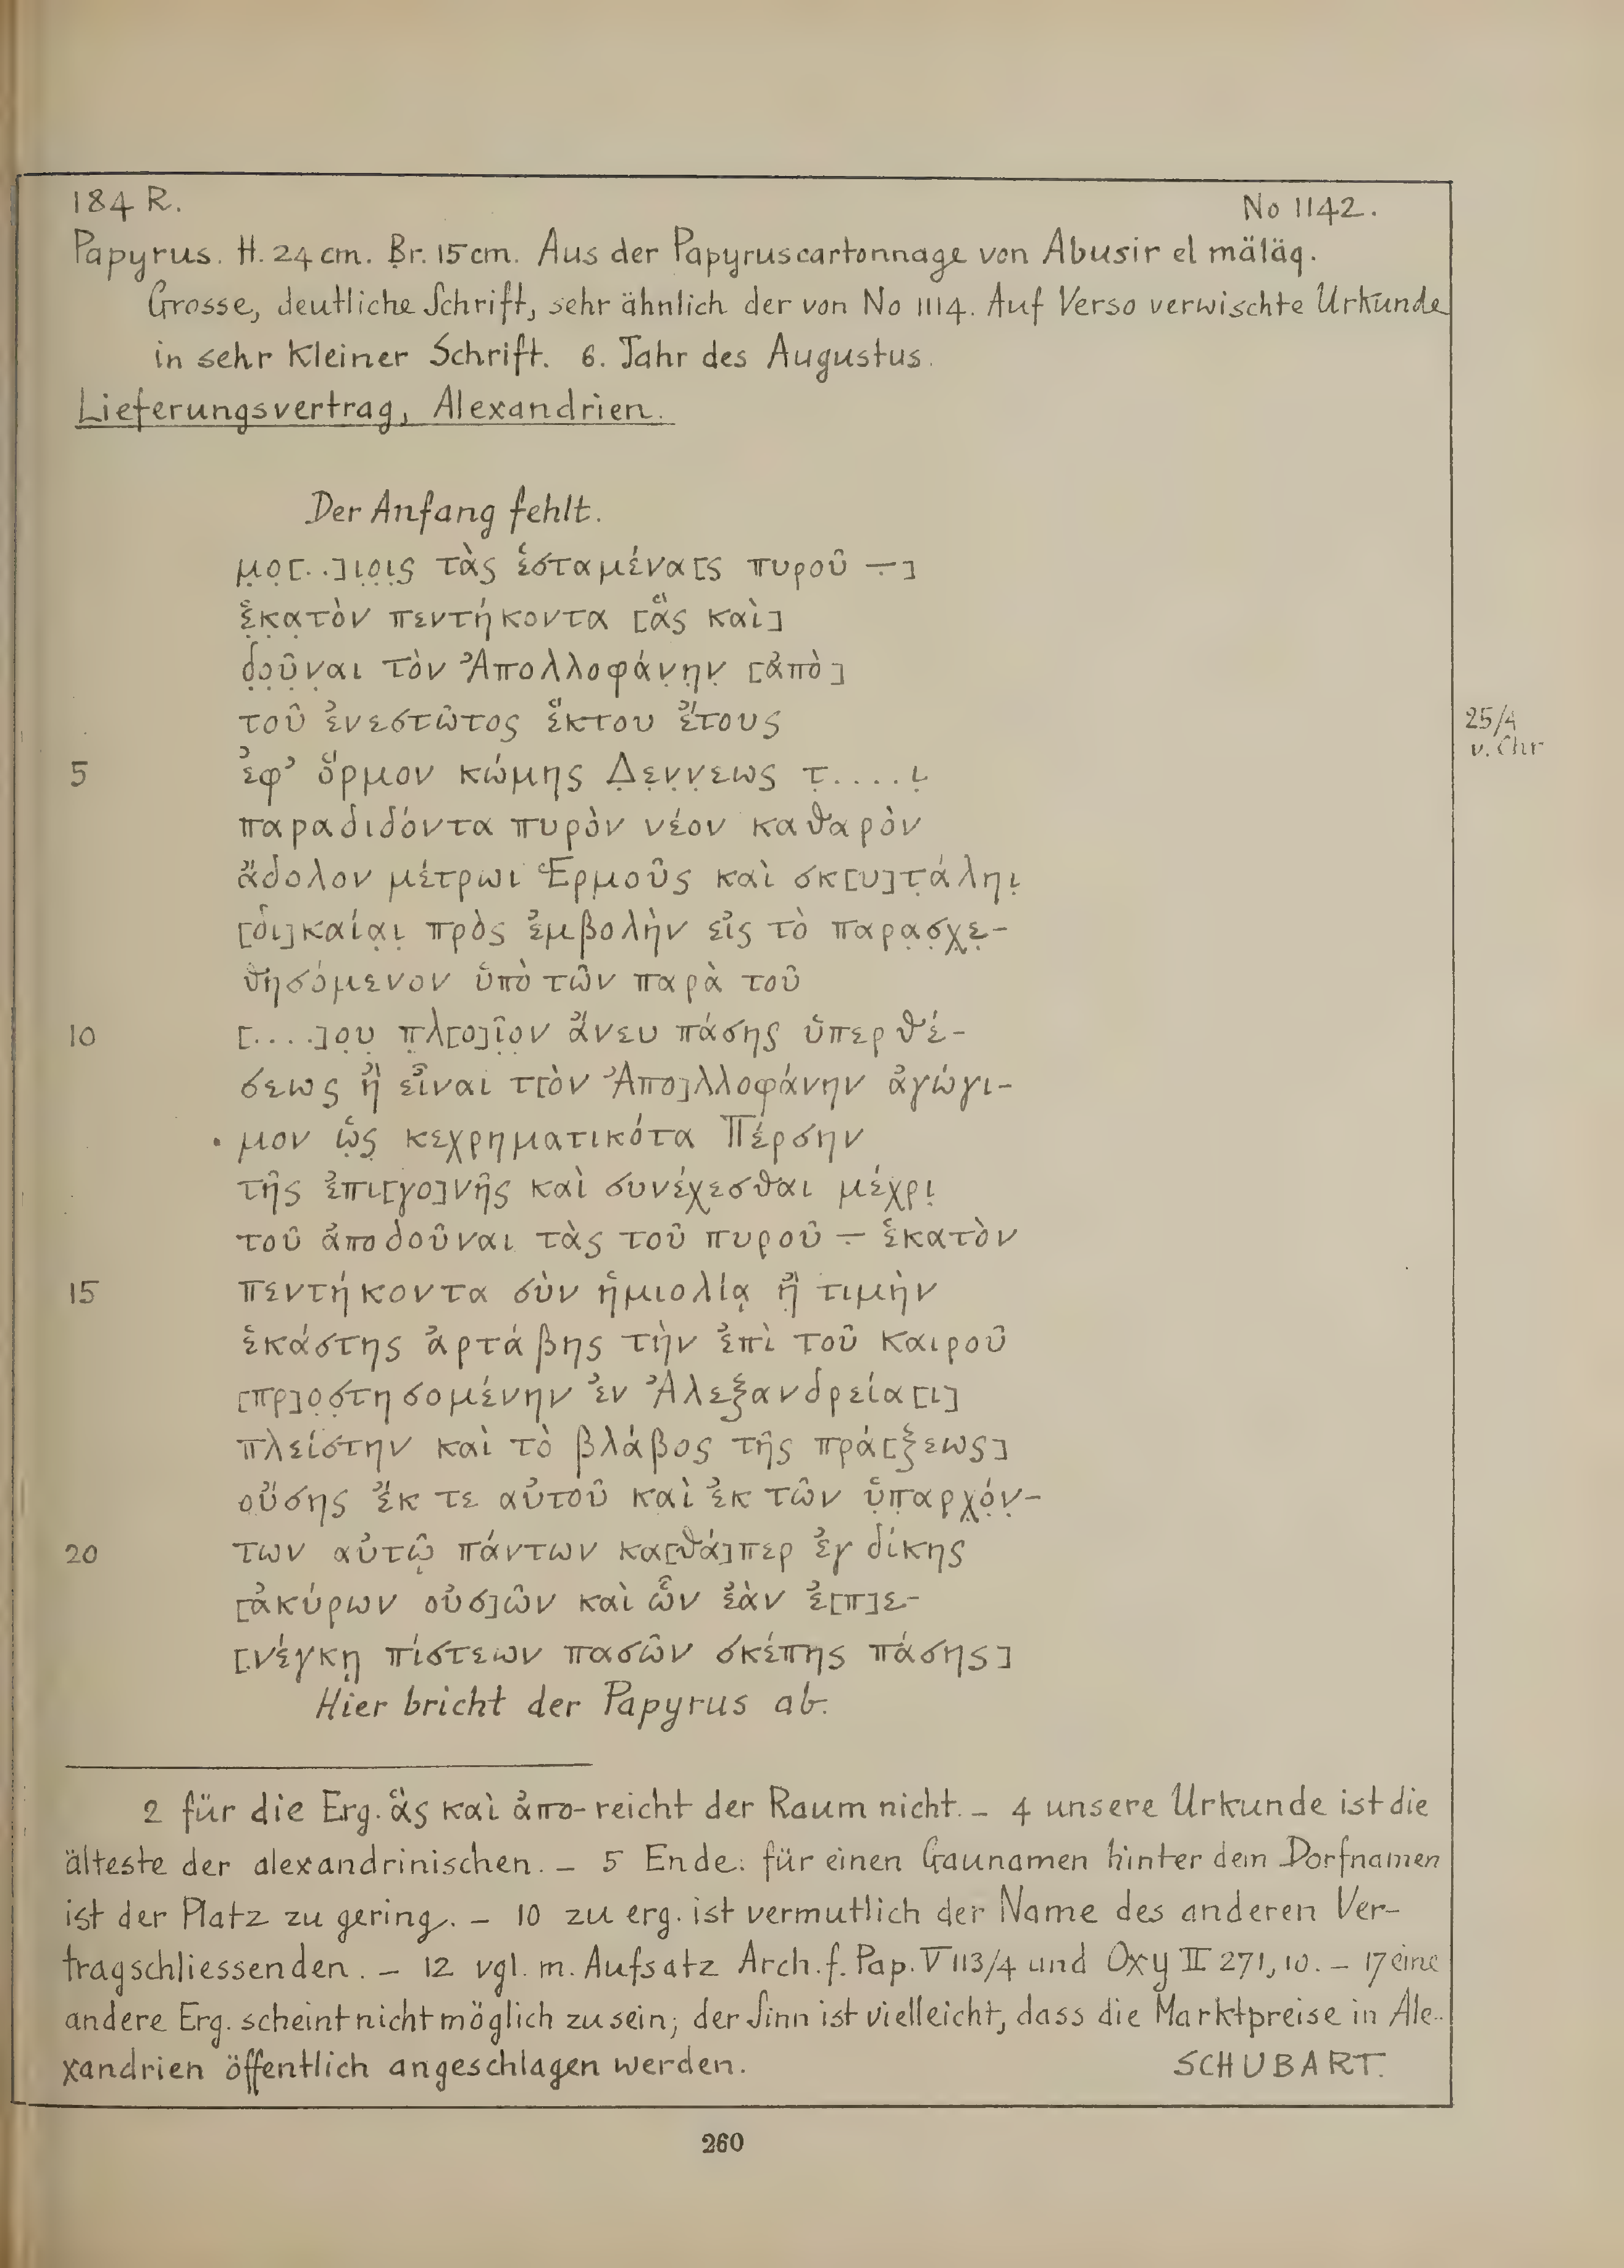 184 R.
No 1142.
Papyrus. H. 24 cm. Br. 15 cm. Aus der Papyruscartonnage von Abusir el mäläq.
Grosse, deutliche Schrift, sehr ähnlich der von No 1114. Auf Verso verwischte Urkunde
in sehr kleiner Schrift. 6. Jahr des Augustus.
Lieferungsvertrag, Alexandrien.
Der Anfang fehlt.
μ̣ο̣[..]ι̣ο̣ι̣ς τὰς ἑσταμένα[ς πυροῦ ⨪]
ἑ̣κ̣α̣τὸν πεντήκοντα [ἃς καὶ]
δ̣ο̣ῦ̣ν̣αι τὸν Ἀπολλοφάν̣η̣ν̣ [ἀπὸ]
τοῦ ἐνεστῶτος ἕκτου ἔτους
25/4
v. Chr
5 ἐφ' ὅρμον κώμης Δ̣ε̣ν̣ν̣εως τ̣....ι̣
παραδιδόντα πυρὸν νέον καθαρὸν
ἄδολον μέτρωι Ἑρμ̣οῦς καὶ σκ[υ]τ̣άληι̣
[δι]καία̣ι̣ πρὸς ἐμβολὴν εἰς τὸ παρα̣σ̣χ̣ε̣-
θησόμενον ὑπὸ τῶν παρὰ τοῦ
10 [....]ο̣υ̣ π̣λ[ο]ῖ̣ο̣ν ἄνευ πάσης ὑπερθέ-
σεως ἢ εἶναι τ[ὸν Ἀπο]λλοφάνην ἀγώγι-
μον ὡ̣ς̣ κεχρηματικότα Πέρσην
τῆς ἐπι[γο]νῆς καὶ συνέχεσθαι μέχρι̣
τοῦ ἀποδοῦναι τὰς τοῦ πυροῦ ⨪ ἑκατὸν
15 πεντήκοντα σὺν ἡμιολίᾳ ἢ̣ τιμὴν
ἑκάστης ἀρτάβης τὴν ἐπὶ τοῦ καιροῦ
[πρ]ο̣σ̣τησομένην ἐν Ἀλεξανδρεία[ι]
πλείστην καὶ τὸ βλάβος τῆς πρά[ξεως]
οὔσης ἔκ τε αὐτοῦ καὶ ἐκ τῶν ὑ̣π̣αρχ̣ό̣ν̣-
20 των αὐτῷ πάντων κα[θά]περ ἐγ δίκης
[ἀκύρων οὐσ]ῶν καὶ ὧν ἐὰν ἐ[π]ε-
[νέγκῃ πίστεων πασῶν σκέπης πάσης]
Hier bricht der Papyrus ab.
2 für die Erg. ἃς καὶ ἀπο- reicht der Raum nicht. – 4 unsere Urkunde ist die
älteste der alexandrinischen. – 5 Ende: für einen Gaunamen hinter dem Dorfnamen
ist der Platz zu gering. – 10 zu erg. ist vermutlich der Name des anderen Ver-
tragschliessenden. – 12 vgl. m. Aufsatz Arch. f. Pap. V 113/4 und Oxy II 271,10. – 17 eine
andere Erg. scheint nicht möglich zu sein; der Sinn ist vielleicht, dass die Marktpreise in Ale-
xandrien öffentlich angeschlagen werden.
SCHUBART.
260